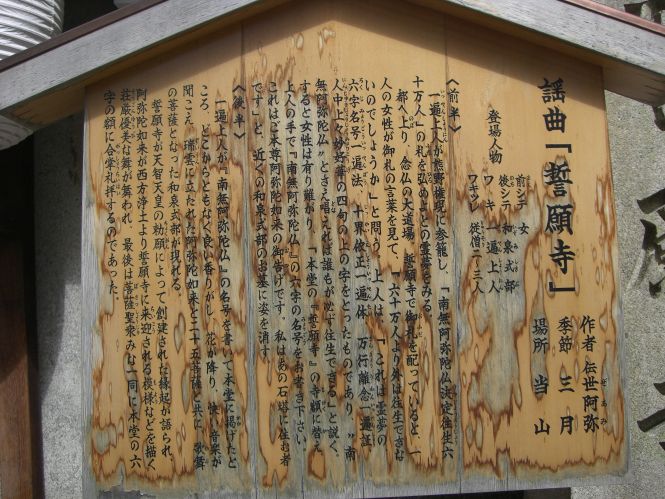 謡曲「誓願寺」
作者 伝世阿弥
季節 三月
場所 当山
登場人物
前シテ 女
後シテ 和泉式部
ワキ 一遍上人
ワキツレ 従僧二、三人
〈前半〉
一遍上人が熊野権現に参籠し、「南無阿弥陀仏決定往生六
十万人」の札を弘めよとの霊夢をみる。
都へ上り、念仏の大道場、誓願寺で御札を配っていると、一
人の女性が御札の言葉を見て、「六十万人より外は往生できな
いのでしょうか」と問う。上人は、「これは霊夢の
六字名号一遍法 十界依正一遍体 万行離念一遍証
人中上々妙好華の四句の上の字をとったものであり、〝南
無阿弥陀仏〟とさえ唱えれば誰もが必ず往生できる」と説く。
すると女性は有り難がり、「本堂の『誓願寺』の寺額に替え、
上人の手で『南無阿弥陀仏』の六字の名号をお書き下さい。
これはご本尊阿弥陀如来の御告げです。私はあの石塔に住む者
です」と、近くの和泉式部のお墓に姿を消す。
〈後半〉
一遍上人が『南無阿弥陀仏』の名号を書いて本堂に掲げたと
ころ、どこからともなく良い香りがし、花が降り、快い音楽が
聞こえ、瑞雲に立たれた阿弥陀如来と二十五菩薩と共に、歌舞
の菩薩となった和泉式部が現れる。
誓願寺が天智天皇の勅願によって創建された縁起が語られ、
阿弥陀如来が西方浄土より誓願寺に来迎される模様などを描く
荘厳優美な舞が舞われ、最後は菩薩聖衆みな一同に本堂の六
字の額に合掌礼拝するのであった。